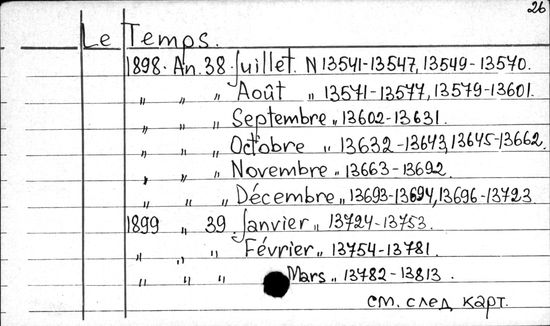 26
Le Temps.
1898. An. 38. Juillet. N 13541-13547, 13549-13570.
" " " Août " 13571-13577, 13579-13601.
" " " Septembre " 13602-13631.
" " " Octobre " 13632-13643, 13645-13662.
" " " Novembre " 13663-13692.
" " " Décembre " 13693-13694, 13696-13723.
1899 " 39. Janvier " 13724-13753.
" " " Février " 13754-13781.
" " " Mars " 13782-13813.
см. след карт.